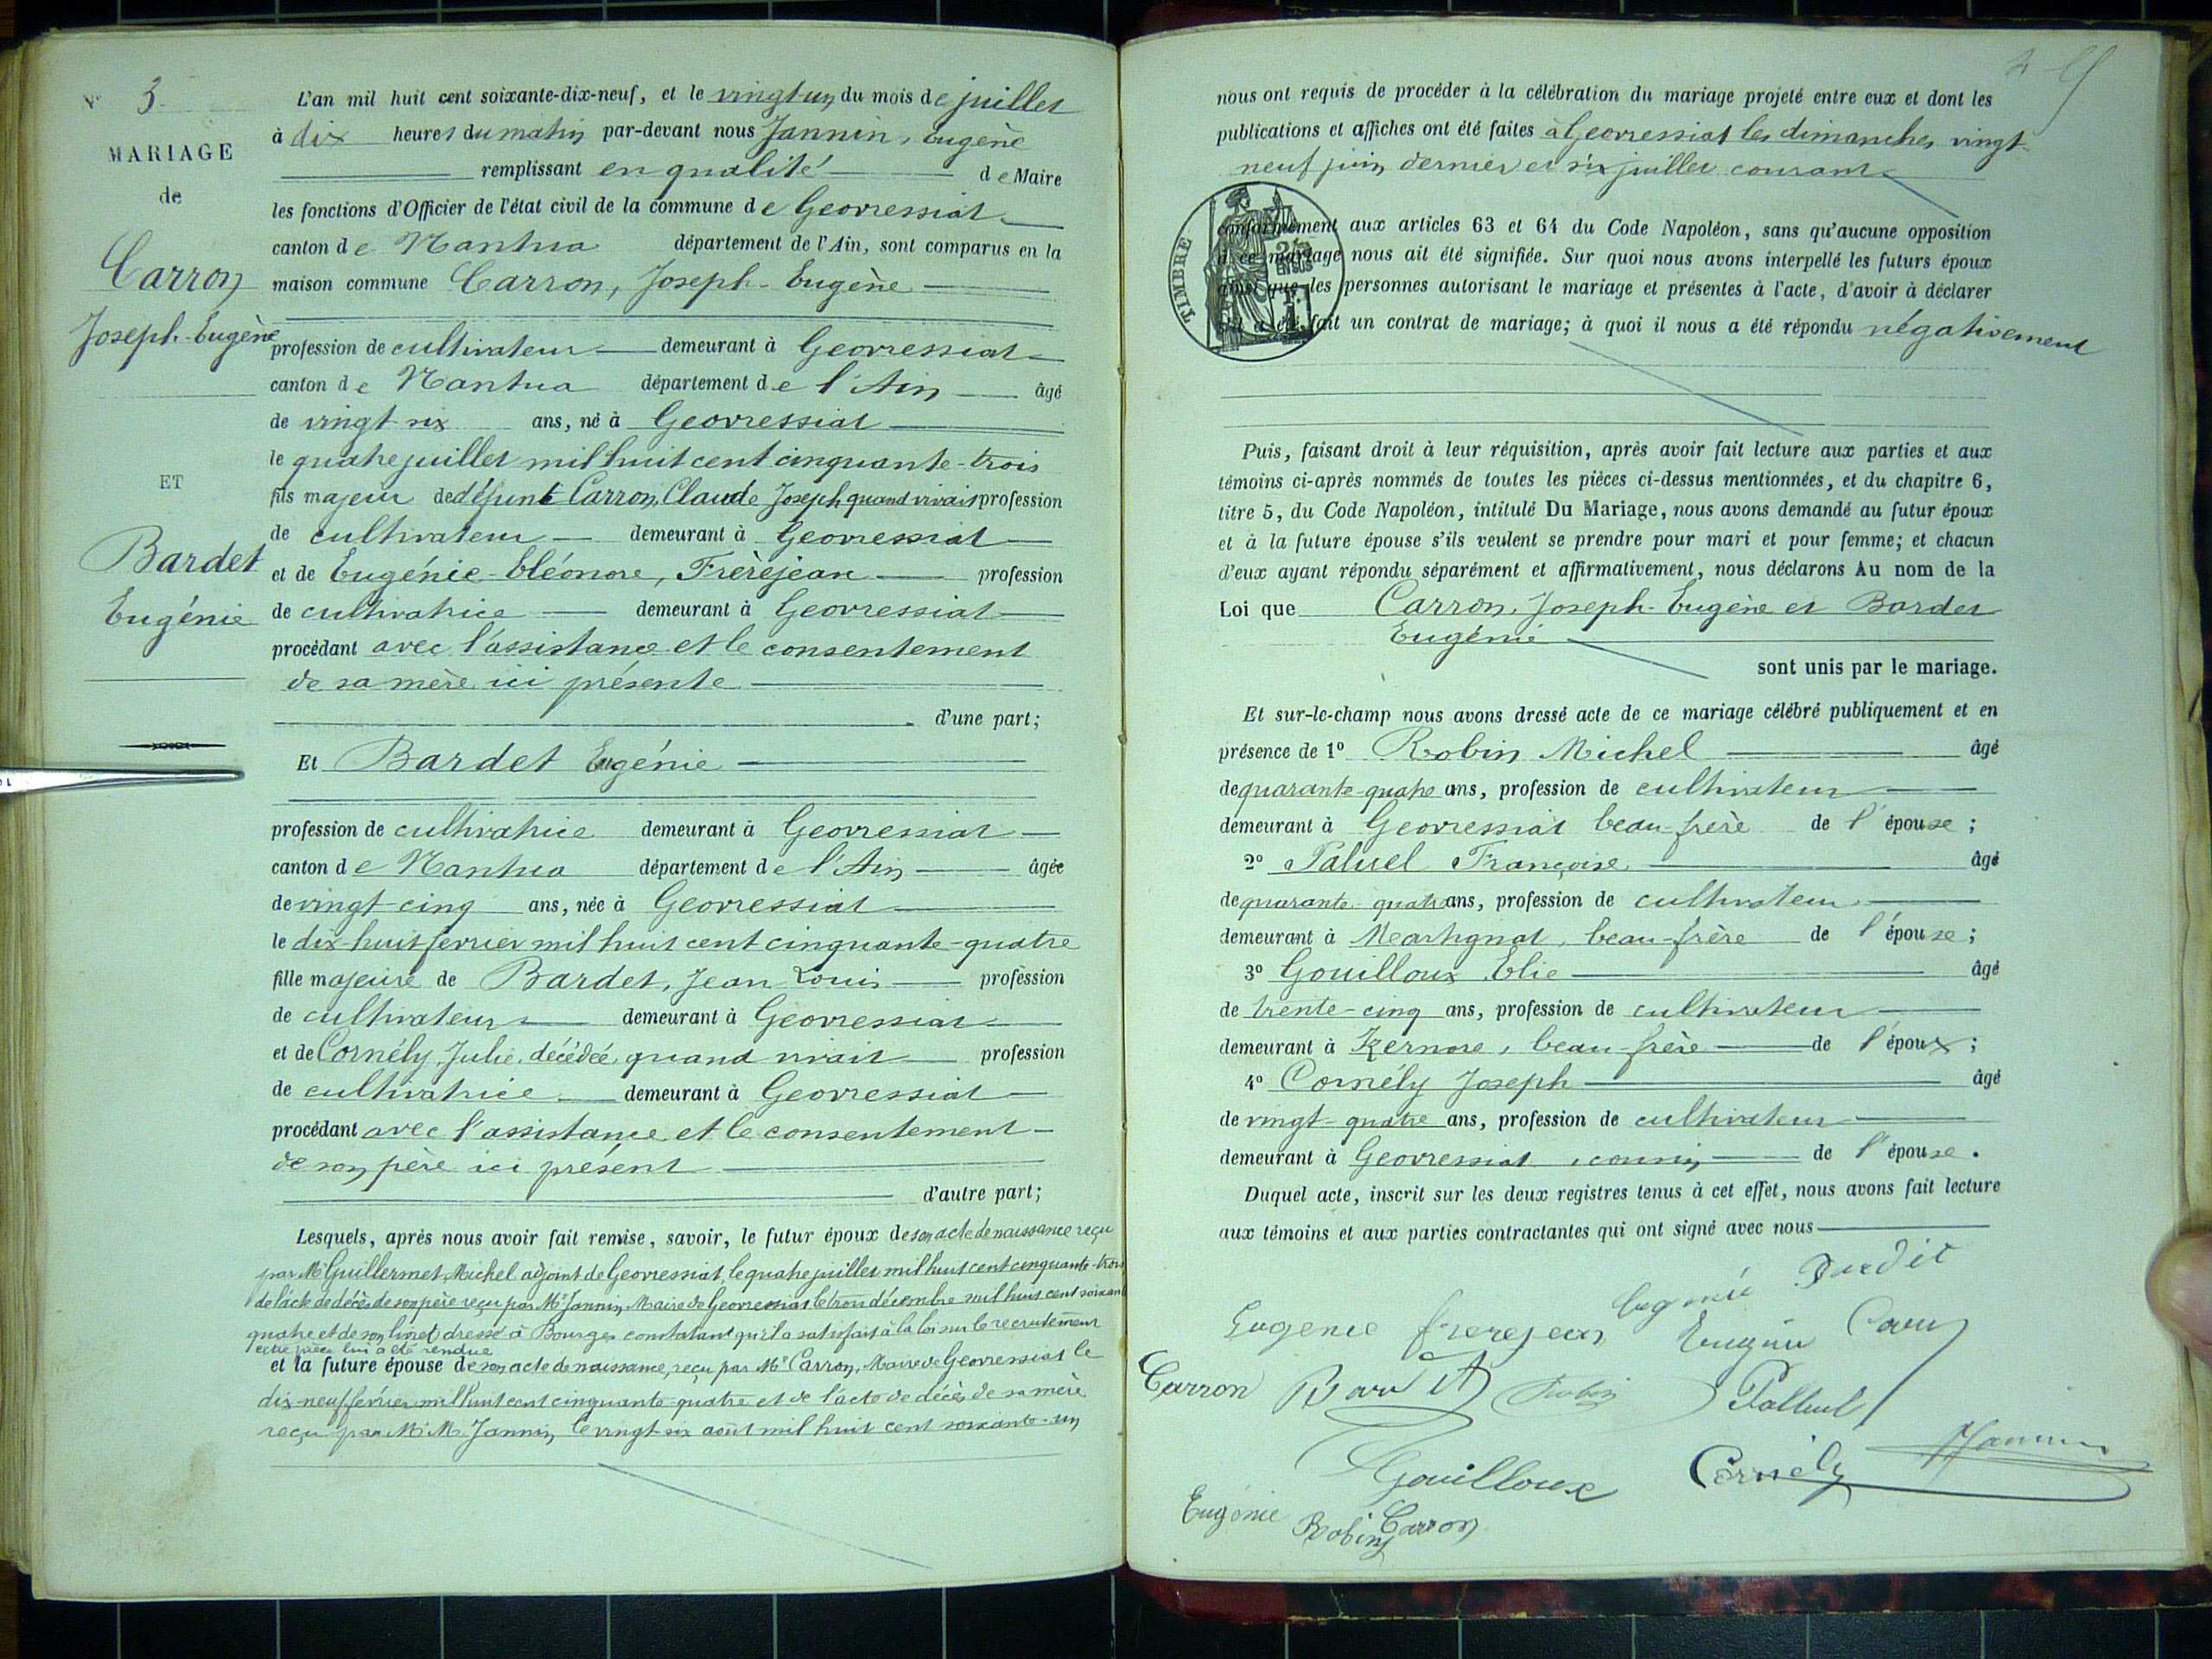 N° 3
MARIAGE
de
Carron
Joseph-Eugène
ET
Bardet
Eugénie
L'an mil huit cent soixante-dix-neuf, et le vingt un du mois de juillet
à dix heures du matin par-devant nous Jannin, Eugène
remplissant en qualité de Maire
les fonctions d'Officier de l'état civil de la commune de Geovressiat
canton de Nantua département de l'Ain, sont comparus en la
maison commune Carron, Joseph-Eugène
profession de cultivateur demeurant à Geovressiat
canton de Nantua département de l'Ain âgé
de vingt six ans, né à Geovressiat
le quatre juillet mil huit cent cinquante-trois
fils majeur de défunt Carron, Claude Joseph quand vivait profession
de cultivateur demeurant à Geovressiat
et de Eugénie-Eléonore, Frèrejean profession
de cultivatrice demeurant à Geovressiat
procédant avec l'assistance et le consentement
de sa mère ici présente
d'une part;
Et Bardet Eugénie
profession de cultivatrice demeurant à Geovressiat
canton de Nantua département de l'Ain âgée
de vingt-cinq ans, née à Geovressiat
le dix-huit fevrier mil huit cent cinquante-quatre
fille majeure de Bardet, Jean Louis profession
de cultivateur demeurant à Geovressiat
et de Cornély Julie, décédée, quand vivait profession
de cultivatrice demeurant à Geovressiat
procédant avec l'assistance et le consentement
de son père ici présent
d'autre part;
Lesquels, après nous avoir fait remise, savoir, le futur époux de son acte de naissance reçu
par Mr Guillermet, Michel adjoint de Geovressiat, le quatre juillet mil huit cent cinquante-trois
de l'acte de décès de son père reçu par Mr Jannin, Maire de Geovressiat le trois décembre mil huit cent soixante
quatre et de son livret dressé à Bourges constatant qu'il a satisfait à la loi sur le recrutement
cette pièce lui a été rendue
et la future épouse de son acte de naissance, reçu par Mr Carron, Maire de Geovressiat le
dix-neuf février mil huit cent cinquante-quatre et de l'acte de décès de sa mère
reçu par Mr Jannin, le vingt-six août mil huit cent soixante-un
nous ont requis de procéder à la célébration du mariage projeté entre eux et dont les
publications et affiches ont été faites à Geovressiat les dimanches vingt
neuf juin dernier et six juillet courant
TIMBRE
conformément aux articles 63 et 64 du Code Napoléon, sans qu'aucune opposition
à ce mariage nous ait été signifiée. Sur quoi nous avons interpellé les futurs époux
ainsi que les personnes autorisant le mariage et présentes à l'acte, d'avoir à déclarer
s'il a été fait un contrat de mariage; à quoi il nous a été répondu négativement
Puis, faisant droit à leur réquisition, après avoir fait lecture aux parties et aux
témoins ci-après nommés de toutes les pièces ci-dessus mentionnées, et du chapitre 6,
titre 5, du Code Napoléon, intitulé Du Mariage, nous avons demandé au futur époux
et à la future épouse s'ils veulent se prendre pour mari et pour femme; et chacun
d'eux ayant répondu séparément et affirmativement, nous déclarons Au nom de la
Loi que Carron, Joseph-Eugène et Bardet
Eugénie
sont unis par le mariage.
Et sur-le-champ nous avons dressé acte de ce mariage célébré publiquement et en
présence de 1° Robin Michel âgé
de quarante-quatre ans, profession de cultivateur
demeurant à Geovressiat beau-frère de l'épouse;
2° Paluel Françoise âgé
de quarante-quatre ans, profession de cultivateur
demeurant à Martignat, beau-frère de l'épouse;
3° Gouilloux Elie âgé
de trente-cinq ans, profession de cultivateur
demeurant à Izernore, beau-frère de l'époux;
4° Cornély Joseph âgé
de vingt-quatre ans, profession de cultivateur
demeurant à Geovressiat, cousin de l'épouse.
Duquel acte, inscrit sur les deux registres tenus à cet effet, nous avons fait lecture
aux témoins et aux parties contractantes qui ont signé avec nous
Eugenie frerejean
Carron Robin Palluel
Gouilloux Cornély Jannin
Eugénie Robin Carron